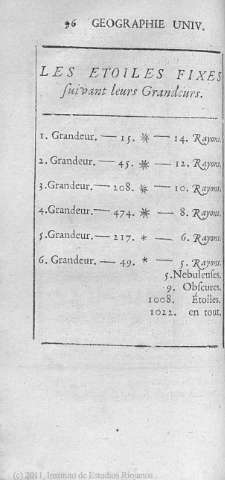 96 GEOGRAPHIE UNIV.
LES ETOILES FIXES
suivant leurs Grandeurs.
1. Grandeur. — 15. * — 14. Rayons.
2. Grandeur. — 45. * — 12. Rayons.
3. Grandeur. — 208. * — 10. Rayons.
4. Grandeur. — 474. * — 8. Rayons.
5. Grandeur. — 217. * — 6. Rayons.
6. Grandeur. — 49. * — 5. Rayons.
5. Nebuleuses.
9. Obscures.
1008. Étoiles.
1022. en tout.
(c) 2011, Instituto de Estudios Riojanos